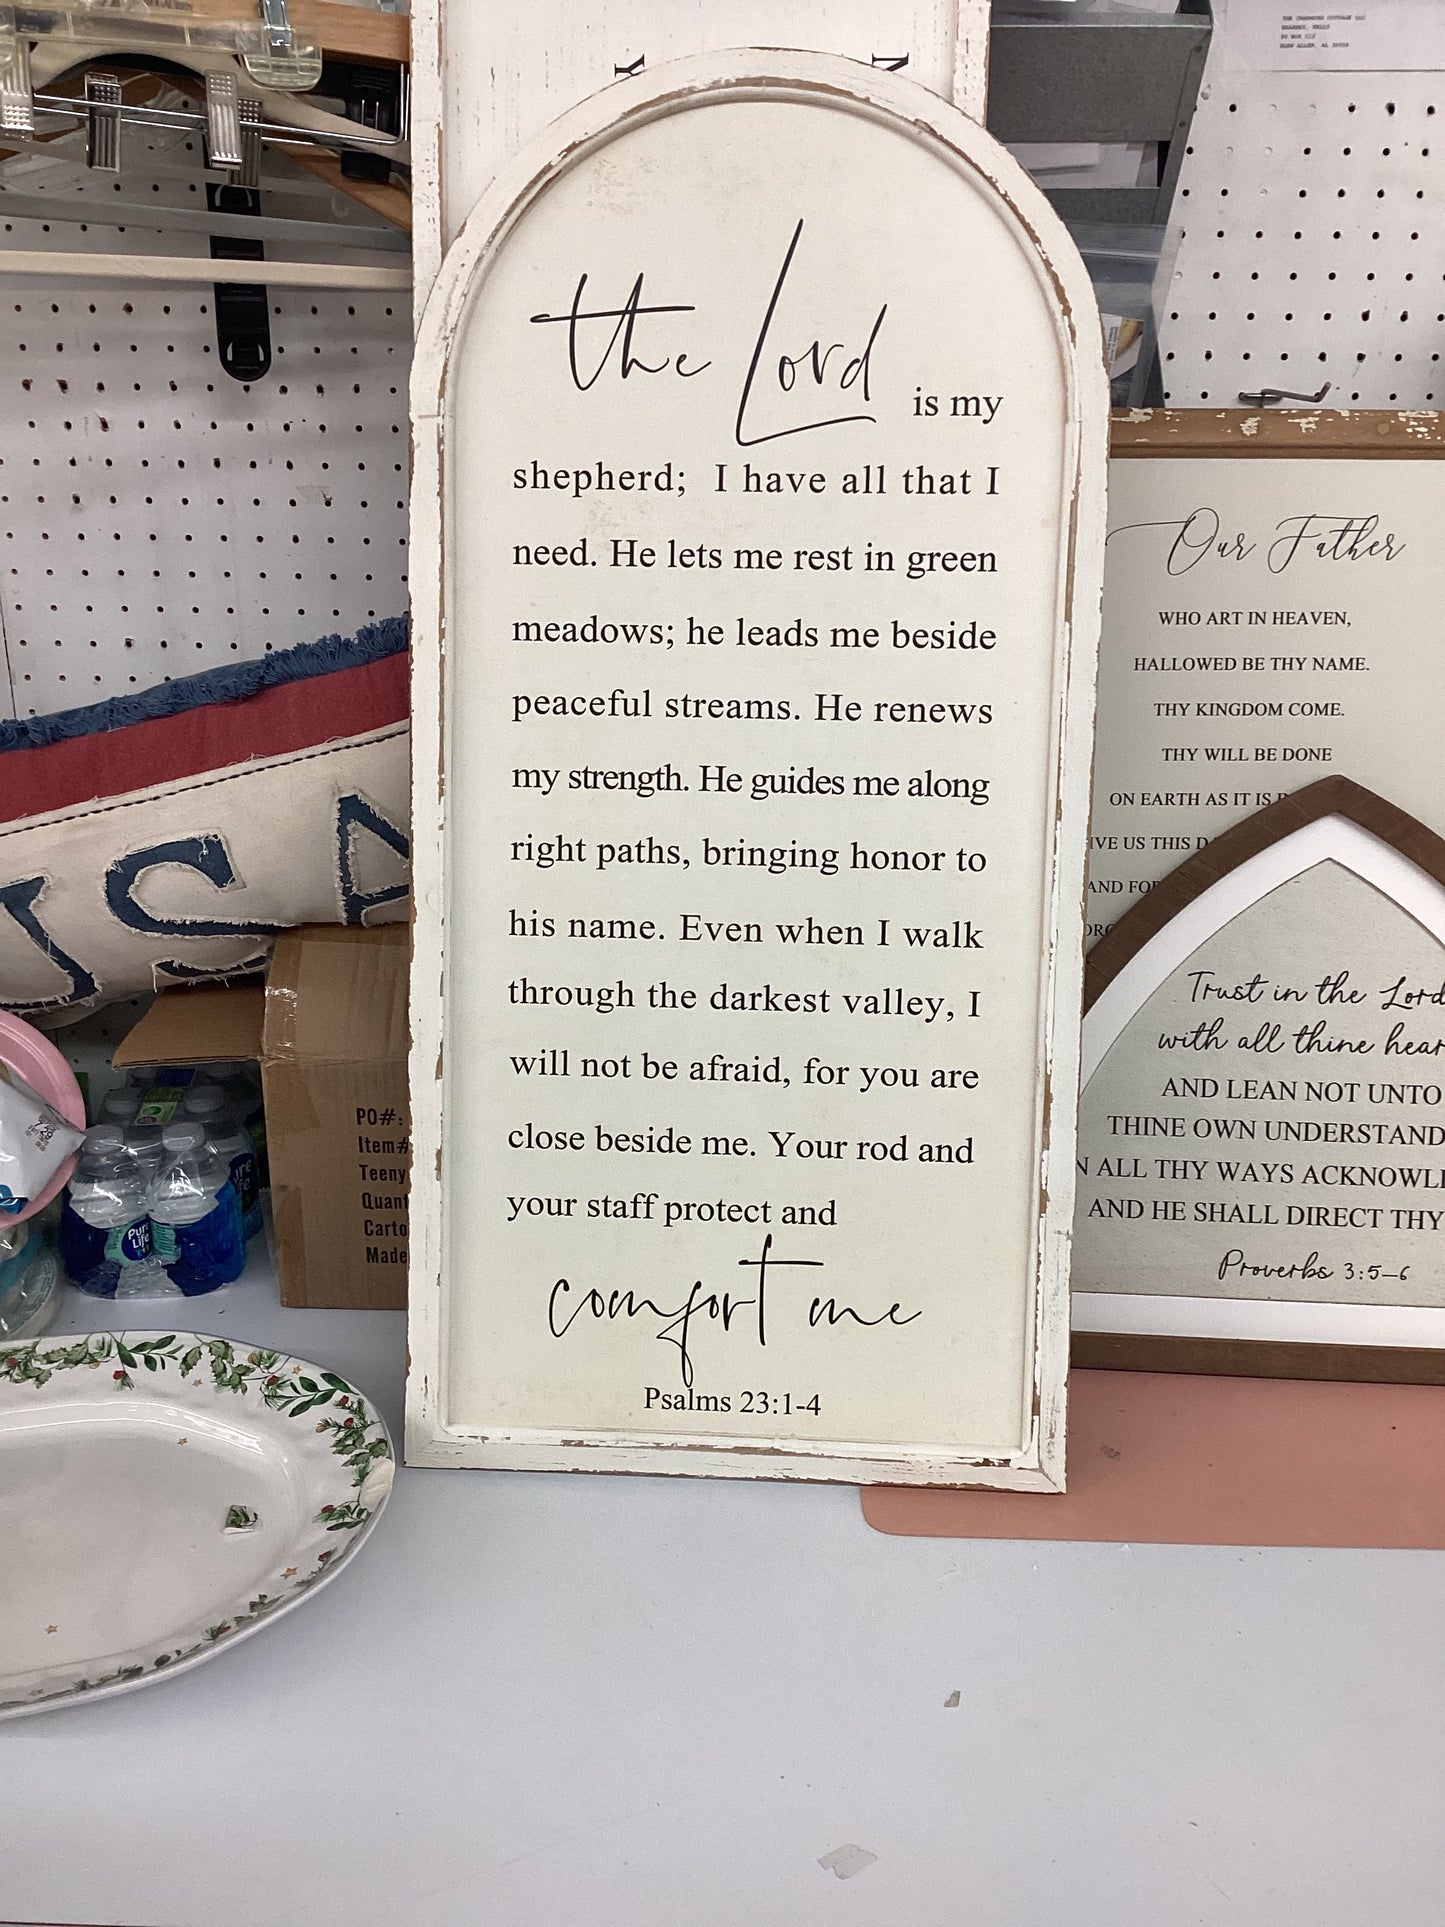 THE CHARMING COTTAGE LLC
Y
N
the Lord is my
shepherd; I have all that I
need. He lets me rest in green
meadows; he leads me beside
peaceful streams. He renews
my strength. He guides me along
right paths, bringing honor to
his name. Even when I walk
through the darkest valley, I
will not be afraid, for you are
close beside me. Your rod and
your staff protect and
comfort me
Psalms 23:1-4
Our Father
WHO ART IN HEAVEN,
HALLOWED BE THY NAME.
THY KINGDOM COME.
THY WILL BE DONE
ON EARTH AS IT IS
IVE US THIS D
AND FOR
Trust in the Lord
with all thine hear
AND LEAN NOT UNTO
THINE OWN UNDERSTAND
N ALL THY WAYS ACKNOWL
AND HE SHALL DIRECT THY
Proverbs 3:5-6
USA
PO#:
Item#
Teeny
Quant
Carto
Made
Pure
Life
7.29